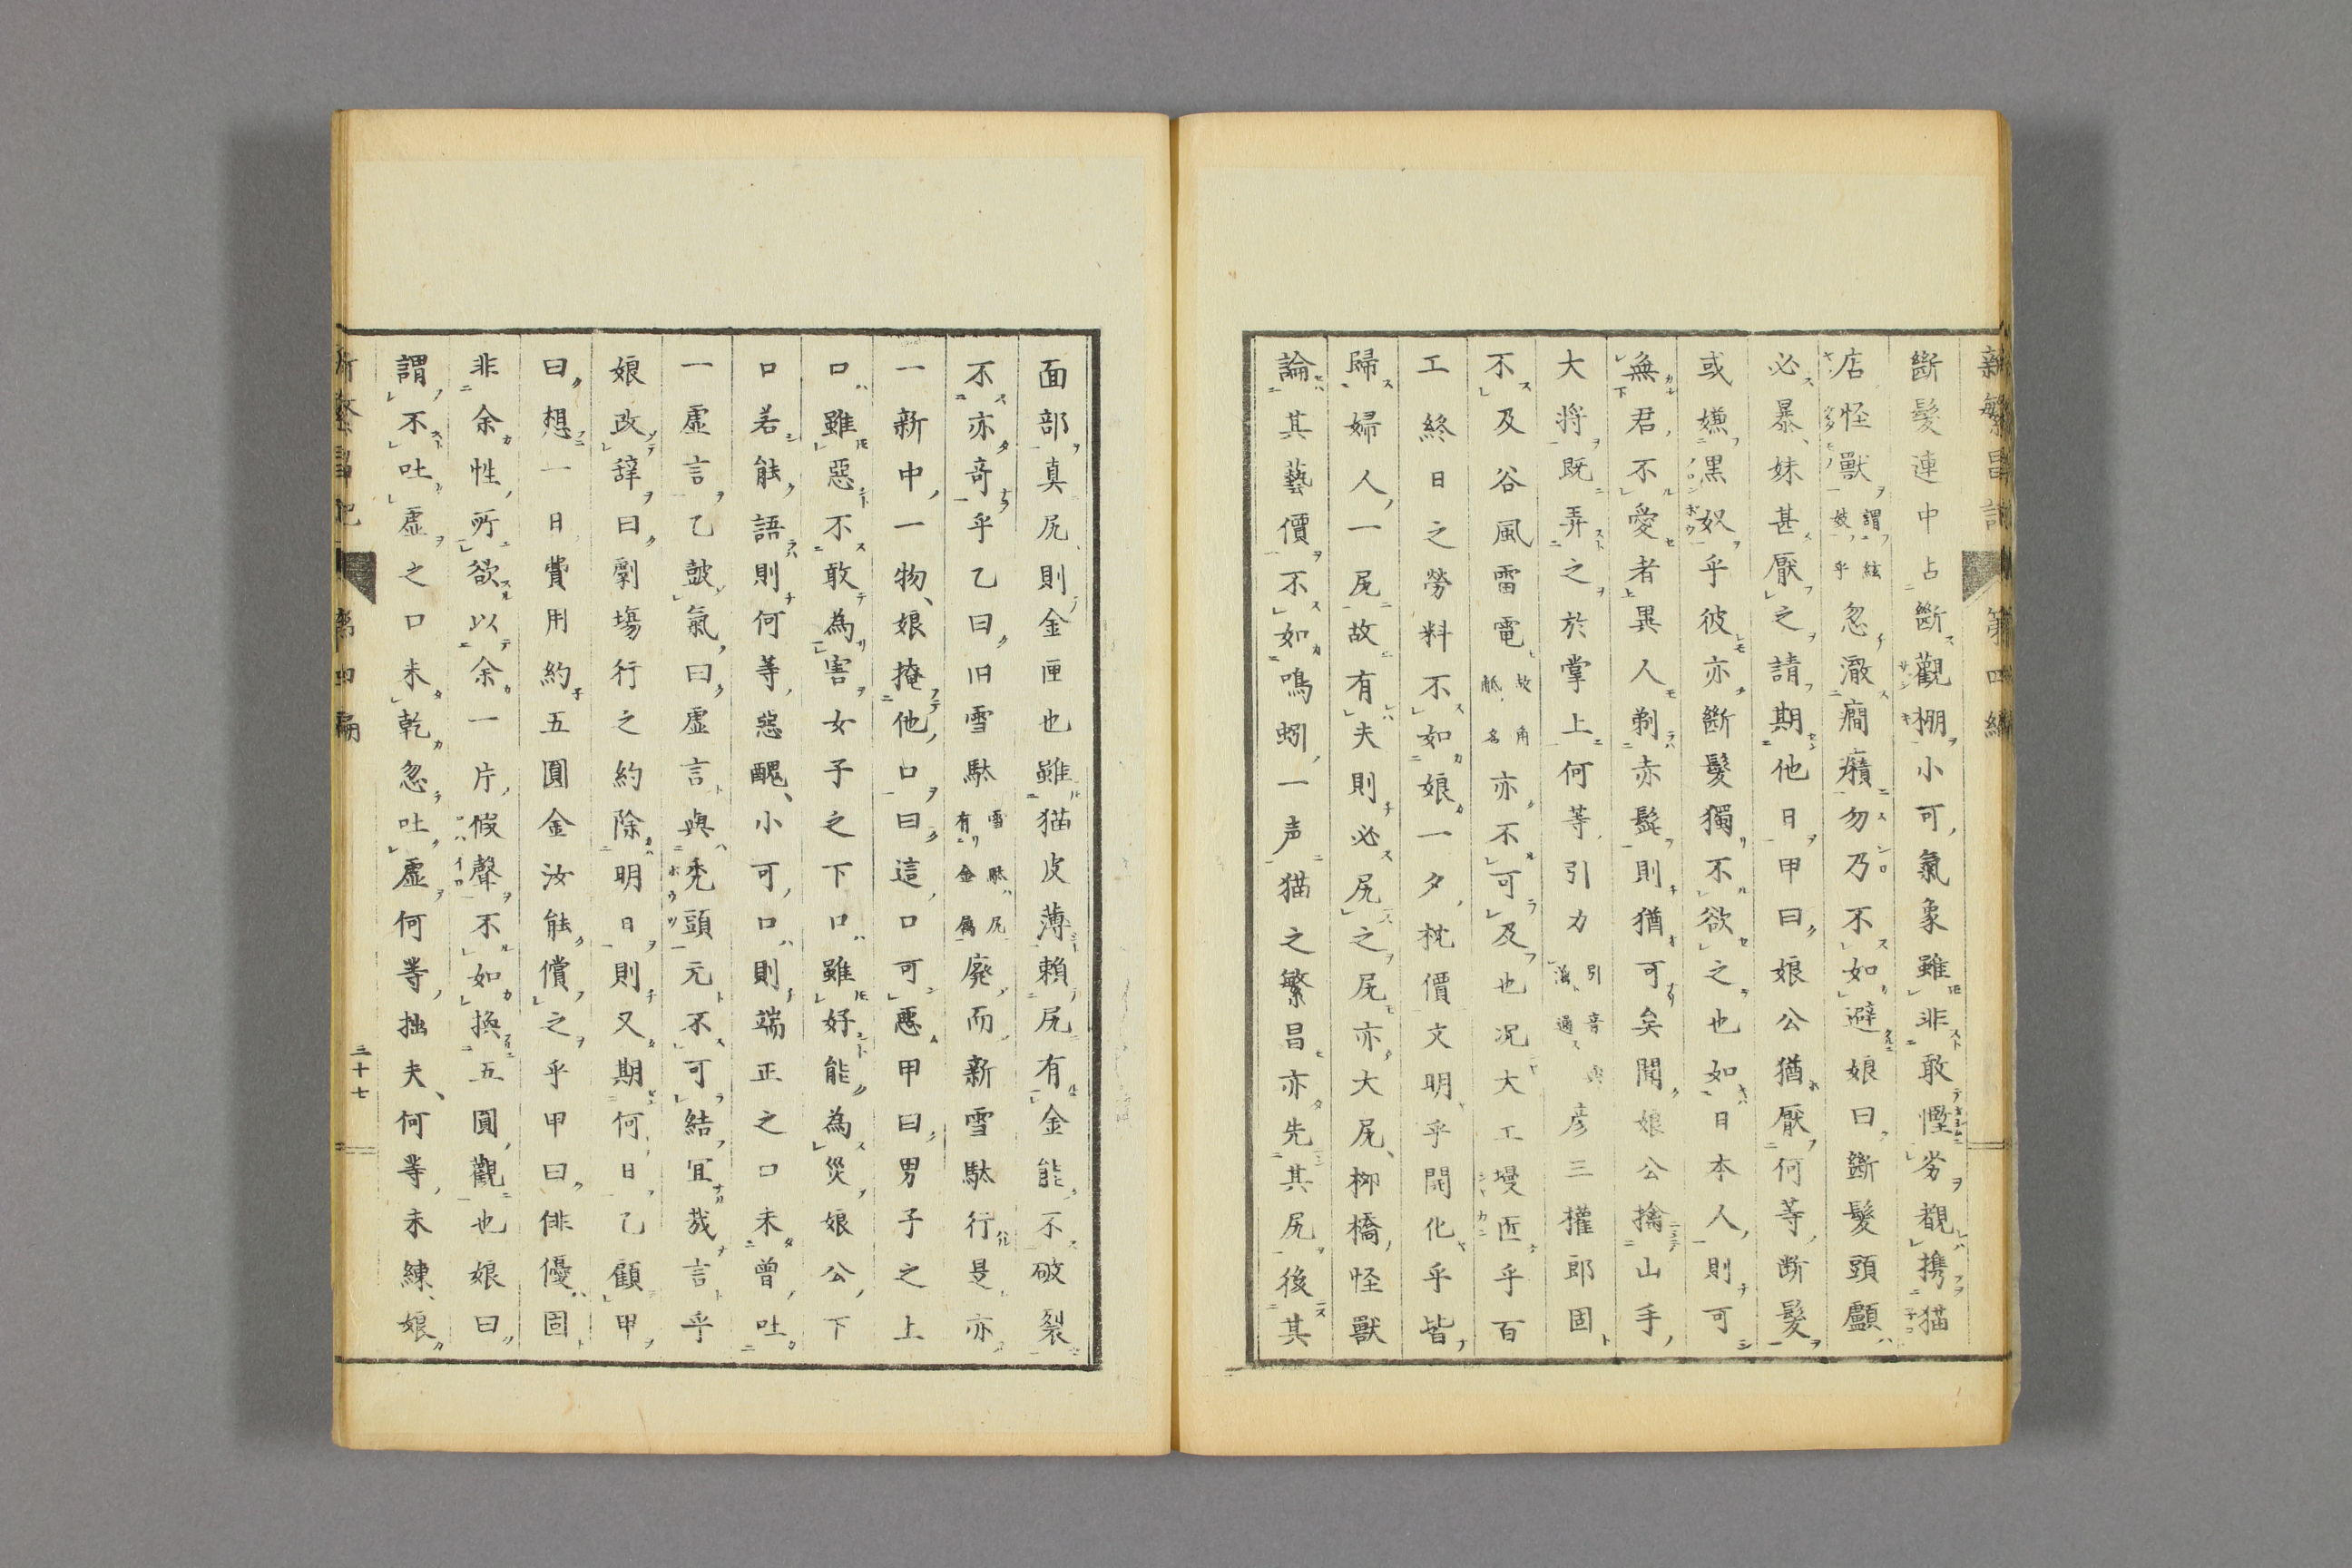 新繁昌記 第四編
斷髮連中占斷觀棚小可氣象雖非敢慳劣覩携猫
店怪獸謂絃妓乎忽澈癇癪勿乃不如避娘曰斷髮頭顱
必暴妹甚厭之請期他日甲曰娘公猶厭何等断髮
或嫌黒奴乎彼亦斷髮獨不欲之也如日本人則可
無君不愛者異人剃赤髭則猶可矣聞娘公擒山手
大将既弄之於掌上何等引力彦三權郎固
不及谷風雷電亦不可及也况大工墁匠乎百
工終日之勞料不如娘一夕枕價文明乎開化乎皆
歸婦人一尻故有夫則必尻之尻亦大尻柳橋怪獸
論其藝價不如鳴蚓一声猫之繁昌亦先其尻後其
面部真尻則金匣也雖猫皮薄賴尻有金能不破裂
不亦奇乎乙曰旧雪駄雪駄尻有金属廢而新雪駄行是亦
一新中一物娘掩他口曰這口可悪甲曰男子之上
口雖惡不敢為害女子之下口雖好能為災娘公下
口若能語則何等惡醜小可口則端正之口未曾吐
一虛言乙皷氣曰虚言與禿頭元不可結冝哉言乎
娘改辞曰劇場行之約除明日則又期何日乙顧甲
曰想一日費用約五圓金汝能償之乎甲曰俳優固
非余性所欲以余一片假聲不如換五圓觀也娘曰
謂不吐虚之口未乾忽吐虛何等拙夫何等未練娘
新繁昌記 第四編
三十七